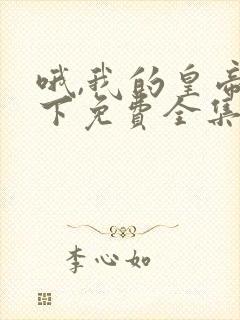 哦,我的皇帝
下免费全集
李心如